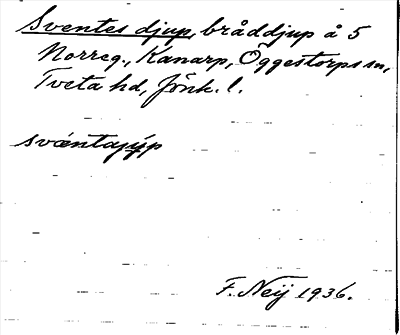 Sventes djup, bråddjup å 5
Norreg., Kanarp, Öggestorps sn,
Tveta hd, Jönk. l.
svæntajýp
F. Neij 1936.